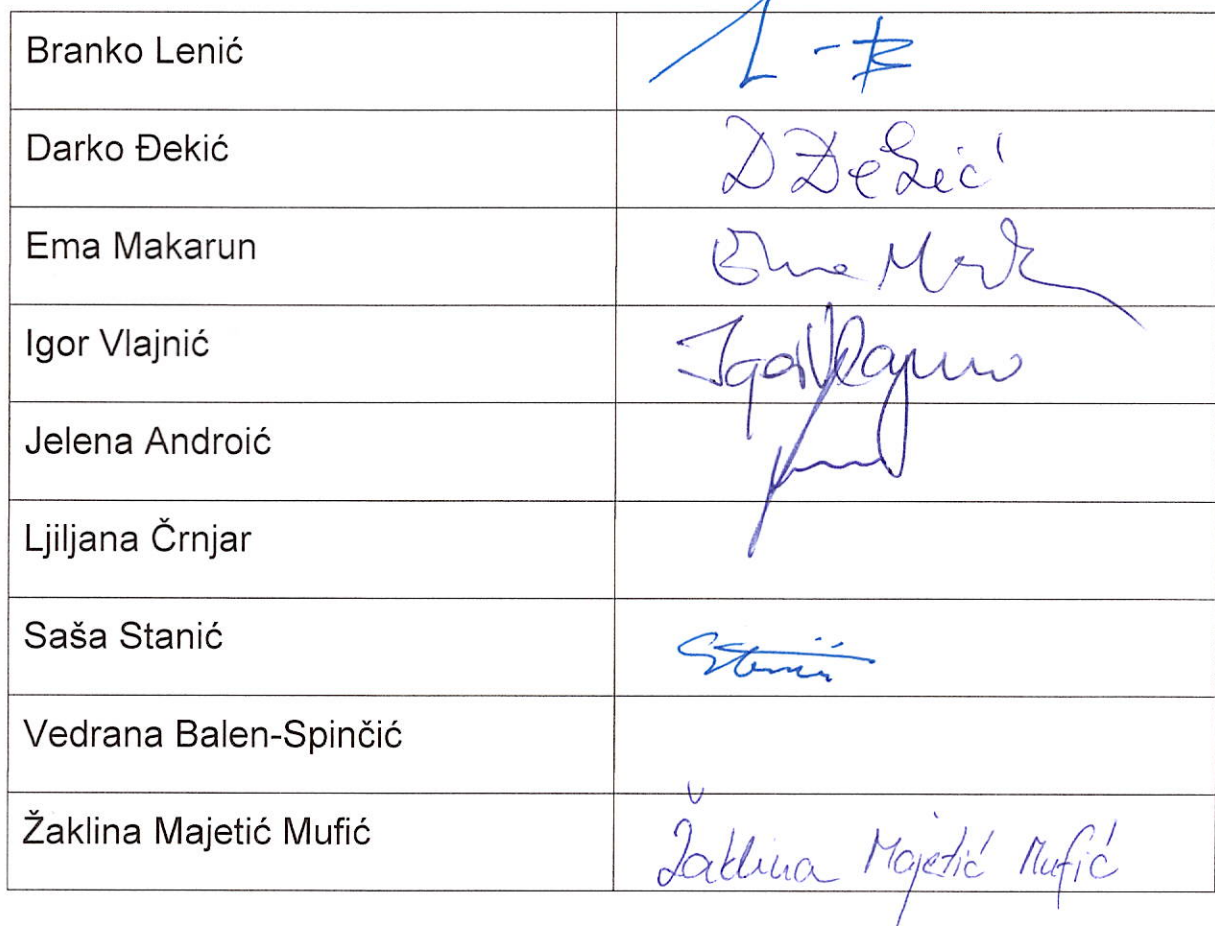 Branko Lenić
Darko Đekić D Đekić
Ema Makarun Ema
Igor Vlajnić Igor
Jelena Androić
Ljiljana Črnjar
Saša Stanić Stanić
Vedrana Balen-Spinčić
Žaklina Majetić Mufić Žaklina Majetić Mufić